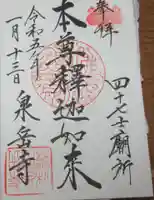 奉拝
四十七士廟所
本尊釋迦如来
令和五年
一月十三日
泉岳寺